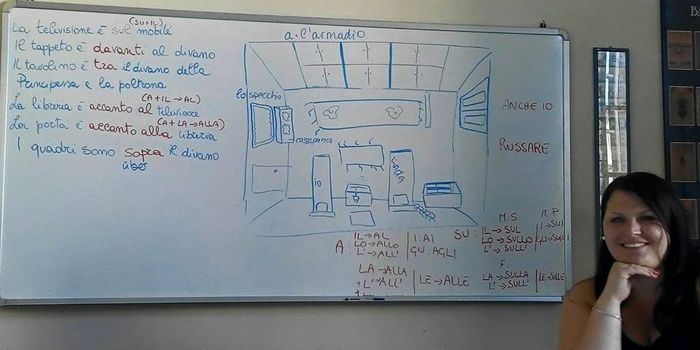 (SU+IL)
La televisione è sul mobile
Il tappeto è davanti al divano
Il tavolino è tra il divano della
Principessa e la poltrona
(A+IL→AL)
La libreria è accanto al televisore
(A+LA→ALLA)
La porta è accanto alla libreria
I quadri sono sopra il divano
über
a. l'armadio
lo specchio
cassapanca
10
ANCHE IO
RUSSARE
A
IL→AL
LO→ALLO
L'→ALL'
I: AI
GLI→AGLI
LA→ALLA
L'→ALL'
LE→ALLE
SU:
M.S
IL→SUL
LO→SULLO
L'→SULL'
M.P
I→SUI
F
LA→SULLA
L'→SULL'
LE→SULLE